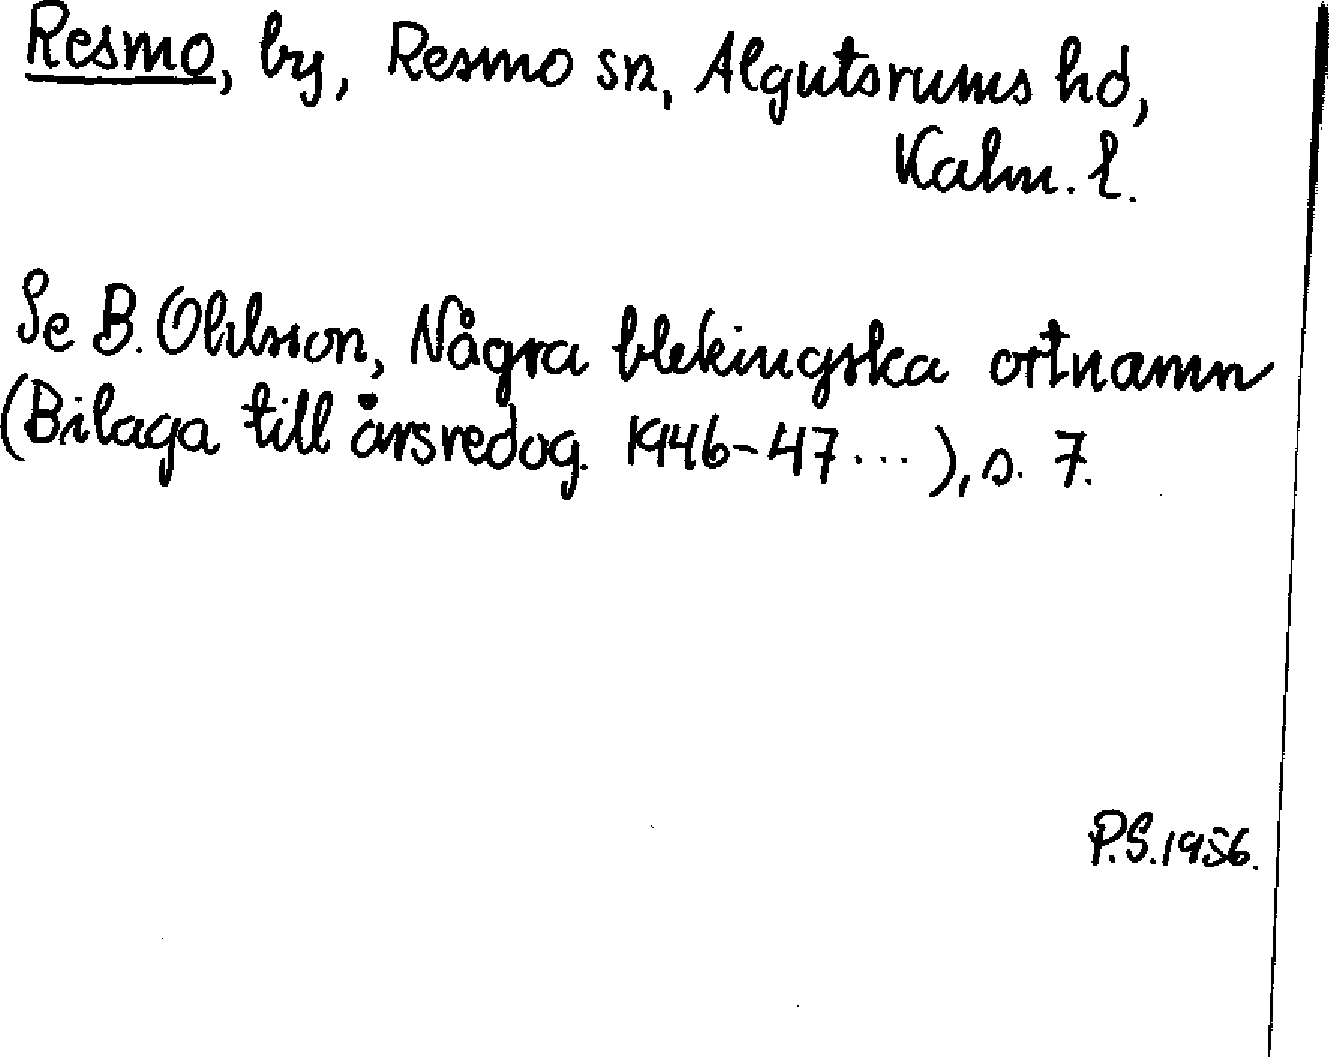 Resmo, by, Resmo sn, Algutsrums hd,
Kalm. l.
Se B. Ohlsson, Några blekingska ortnamn
(Bilaga till årsredog. 1946-47 ... ), s. 7.
P.S. 1956.